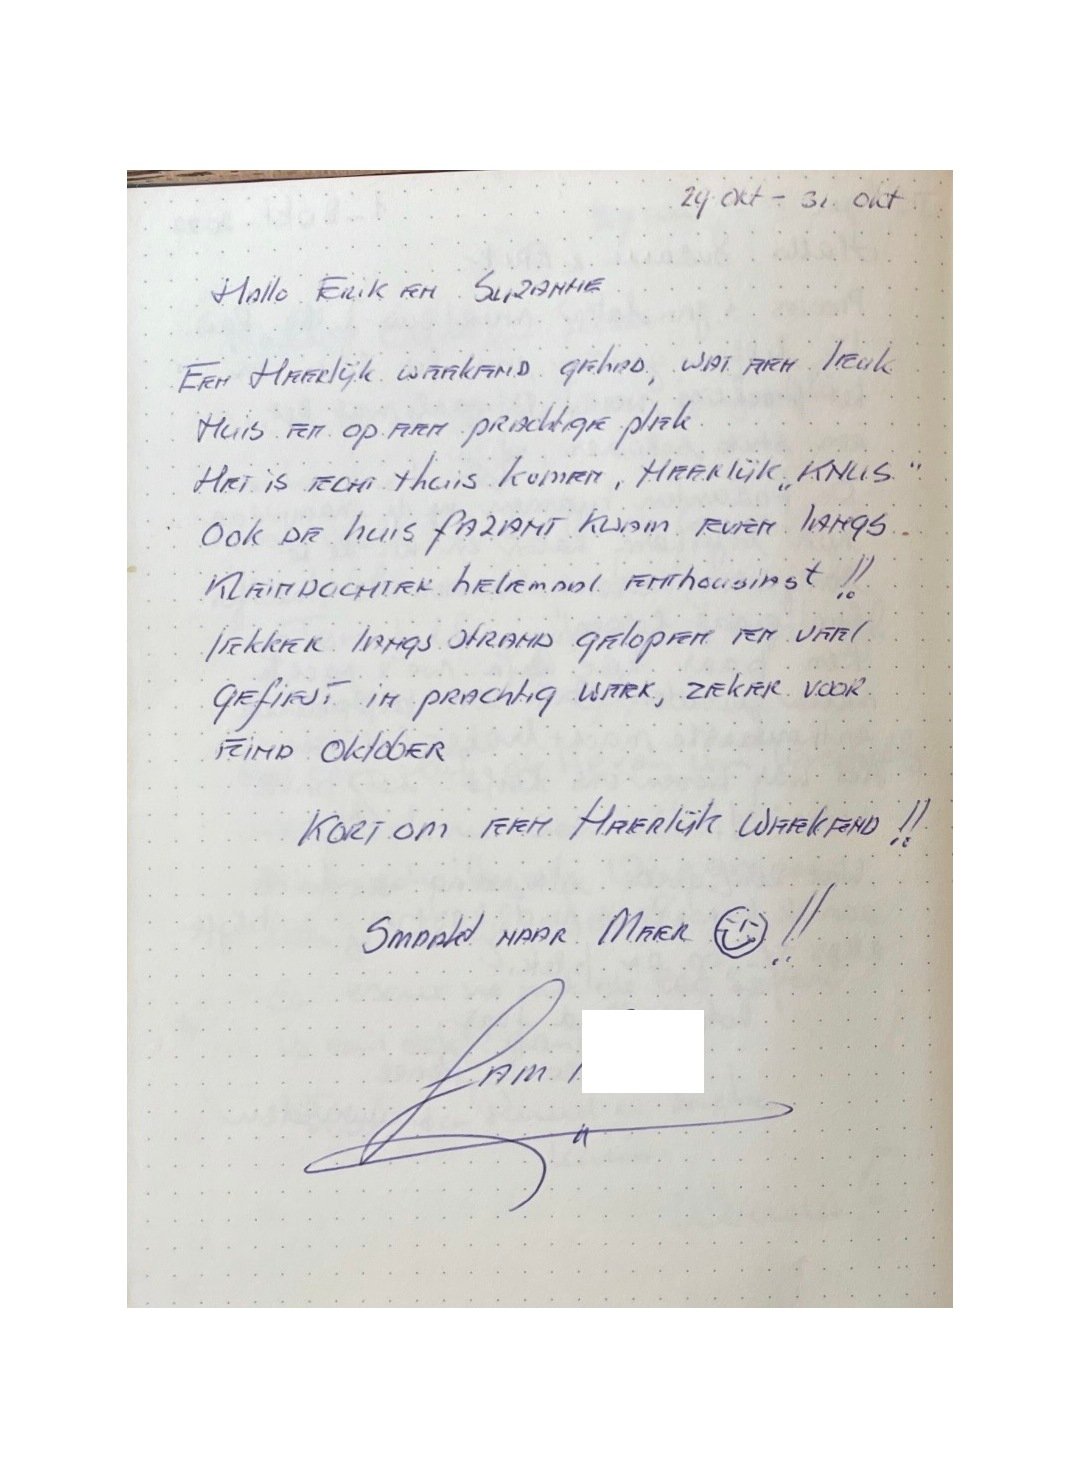 29 okt - 31 okt
Hallo Erik en Suzanne
Een Heerlijk weekend gehad, wat een leuk
Huis en op een prachtige plek.
Het is echt thuis komen, Heerlijk „KNUS"
Ook de huis fazant kwam even langs.
Kleindochter helemaal enthousiast !!
lekker langs strand gelopen en veel
gefietst in prachtig weer, zeker voor
eind Oktober
Kortom een Heerlijk Weekend !!
Smaakt naar Meer !!
Fam.